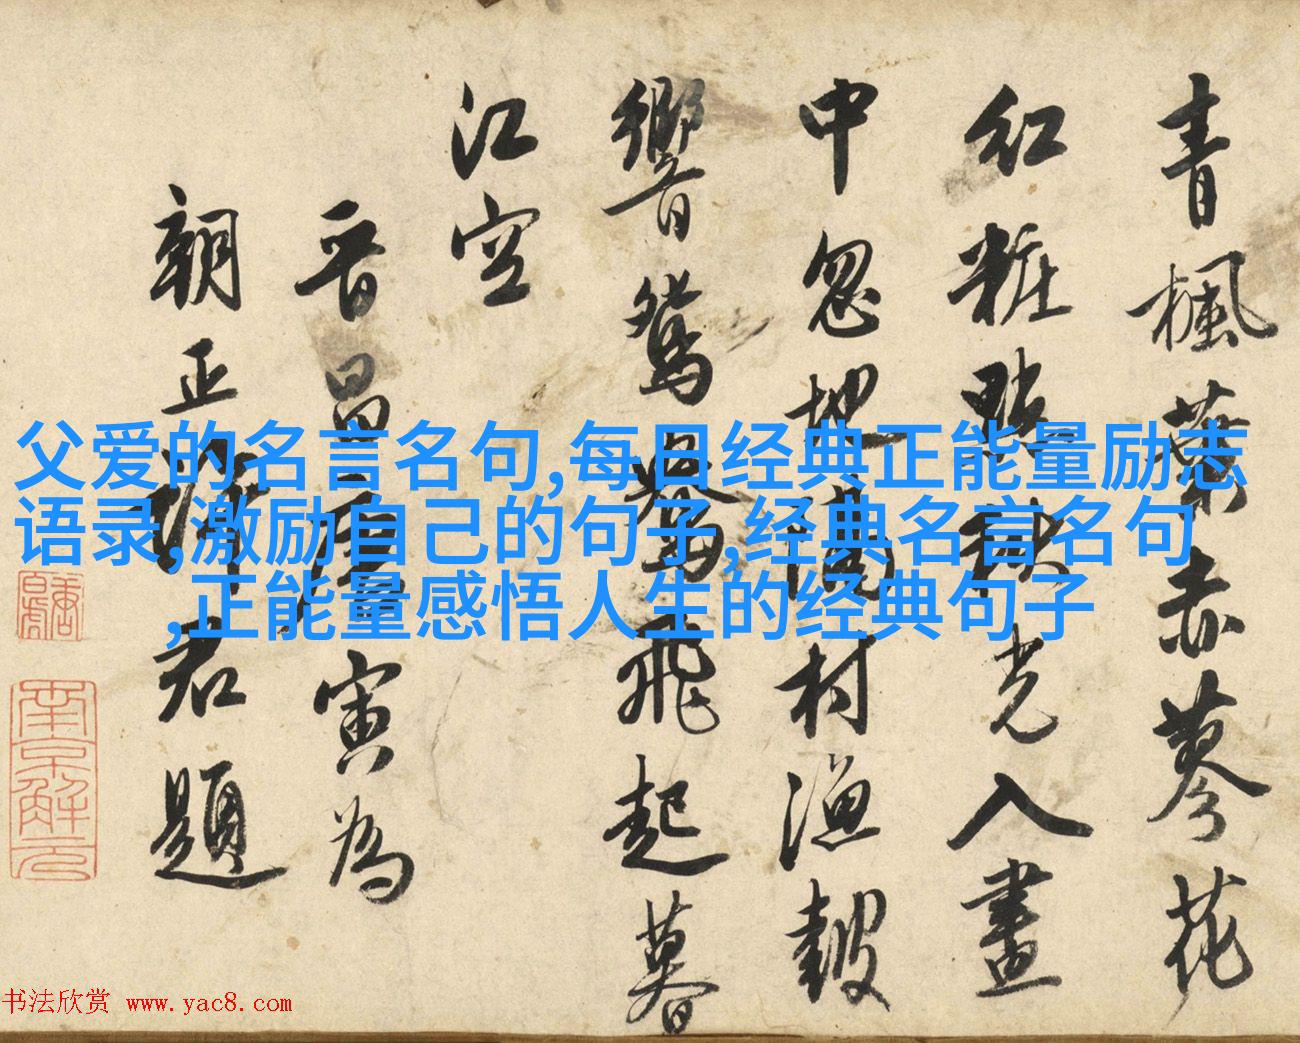 青楓葉赤蓼花
紅粧點秋光入畫
中忽地隔村漁鼓
響鴛鴦飛起暮
江空
晉昌唐寅為
朝正君題
南京解元
父爱的名言名句,每日经典正能量励志
语录,激励自己的句子,经典名言名句
,正能量感悟人生的经典句子
书法欣赏 www.yac8.com